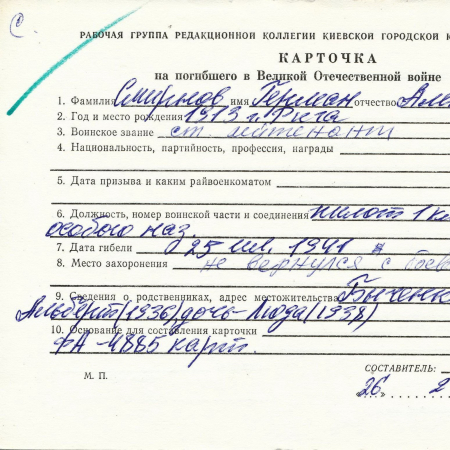 С.
РАБОЧАЯ ГРУППА РЕДАКЦИОННОЙ КОЛЛЕГИИ КИЕВСКОЙ ГОРОДСКОЙ К
КАРТОЧКА
на погибшего в Великой Отечественной войне
1. Фамилия Смирнов имя Герман отчество Але
2. Год и место рождения 1913 г. Рига
3. Воинское звание ст. лейтенант
4. Национальность, партийность, профессия, награды
5. Дата призыва и каким райвоенкоматом
6. Должность, номер воинской части и соединения пилот 1 к
особого наз.
7. Дата гибели 25 июл. 1941
8. Место захоронения не вернулся с боев
9. Сведения о родственниках, адрес местожительства Быченк
Альберт (1936) дочь - Люда (1938)
10. Основание для составления карточки
ФА-4885 карт.
СОСТАВИТЕЛЬ:
М. П.
"26" 2